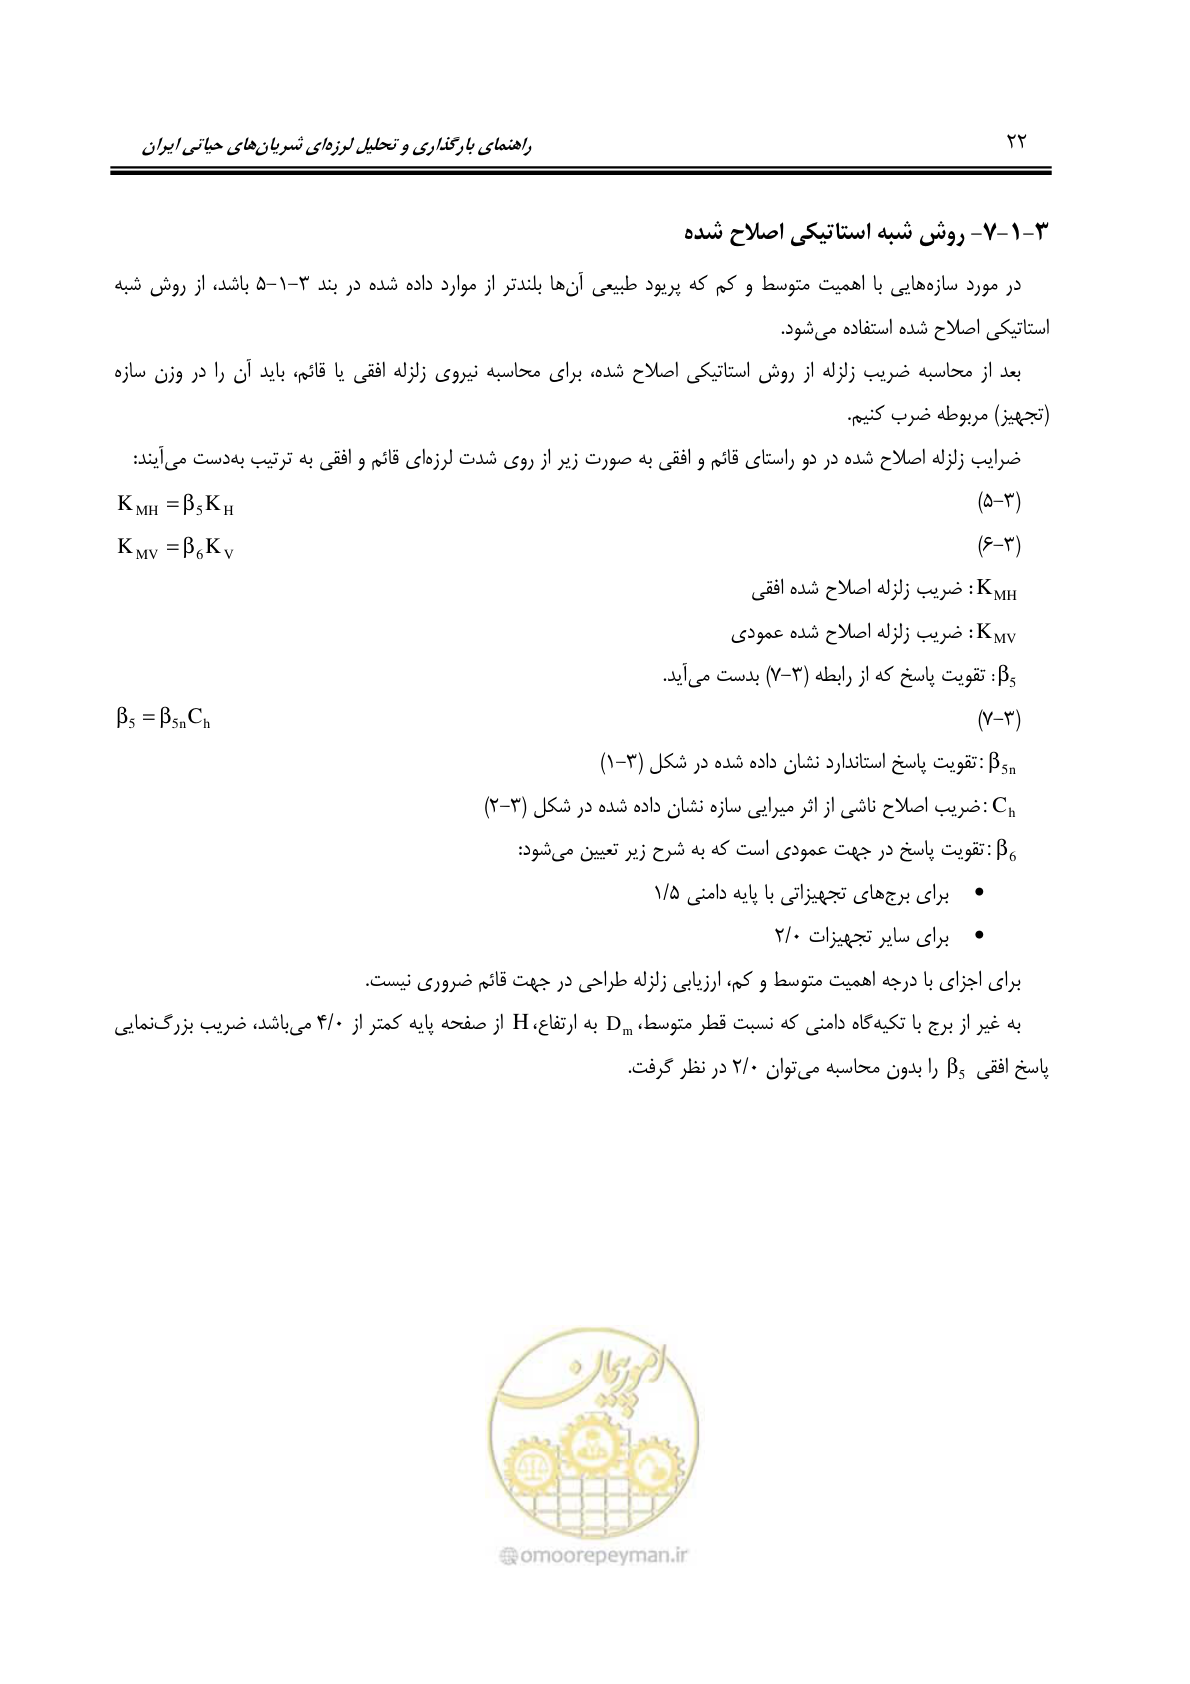 ۲۲
راهنمای بارگذاری و تحلیل لرزه‌ای شریان‌های حیاتی ایران
۳-۱-۷- روش شبه استاتیکی اصلاح شده
در مورد سازه‌هایی با اهمیت متوسط و کم که پریود طبیعی آن‌ها بلندتر از موارد داده شده در بند ۳-۱-۵ باشد، از روش شبه
استاتیکی اصلاح شده استفاده می‌شود.
بعد از محاسبه ضریب زلزله از روش استاتیکی اصلاح شده، برای محاسبه نیروی زلزله افقی یا قائم، باید آن را در وزن سازه
(تجهیز) مربوطه ضرب کنیم.
ضرایب زلزله اصلاح شده در دو راستای قائم و افقی به صورت زیر از روی شدت لرزه‌ای قائم و افقی به ترتیب به‌دست می‌آیند:
(۳-۵) K_MH = β_5 K_H
(۳-۶) K_MV = β_6 K_V
K_MH : ضریب زلزله اصلاح شده افقی
K_MV : ضریب زلزله اصلاح شده عمودی
β_5 : تقویت پاسخ که از رابطه (۳-۷) بدست می‌آید.
(۳-۷) β_5 = β_5n C_h
β_5n :تقویت پاسخ استاندارد نشان داده شده در شکل (۳-۱)
C_h :ضریب اصلاح ناشی از اثر میرایی سازه نشان داده شده در شکل (۳-۲)
β_6 :تقویت پاسخ در جهت عمودی است که به شرح زیر تعیین می‌شود:
• برای برج‌های تجهیزاتی با پایه دامنی ۱/۵
• برای سایر تجهیزات ۲/۰
برای اجزای با درجه اهمیت متوسط و کم، ارزیابی زلزله طراحی در جهت قائم ضروری نیست.
به غیر از برج با تکیه‌گاه دامنی که نسبت قطر متوسط، D_m به ارتفاع، H از صفحه پایه کمتر از ۴/۰ می‌باشد، ضریب بزرگ‌نمایی
پاسخ افقی β_5 را بدون محاسبه می‌توان ۲/۰ در نظر گرفت.
امور پیمان
@omoorepeyman.ir